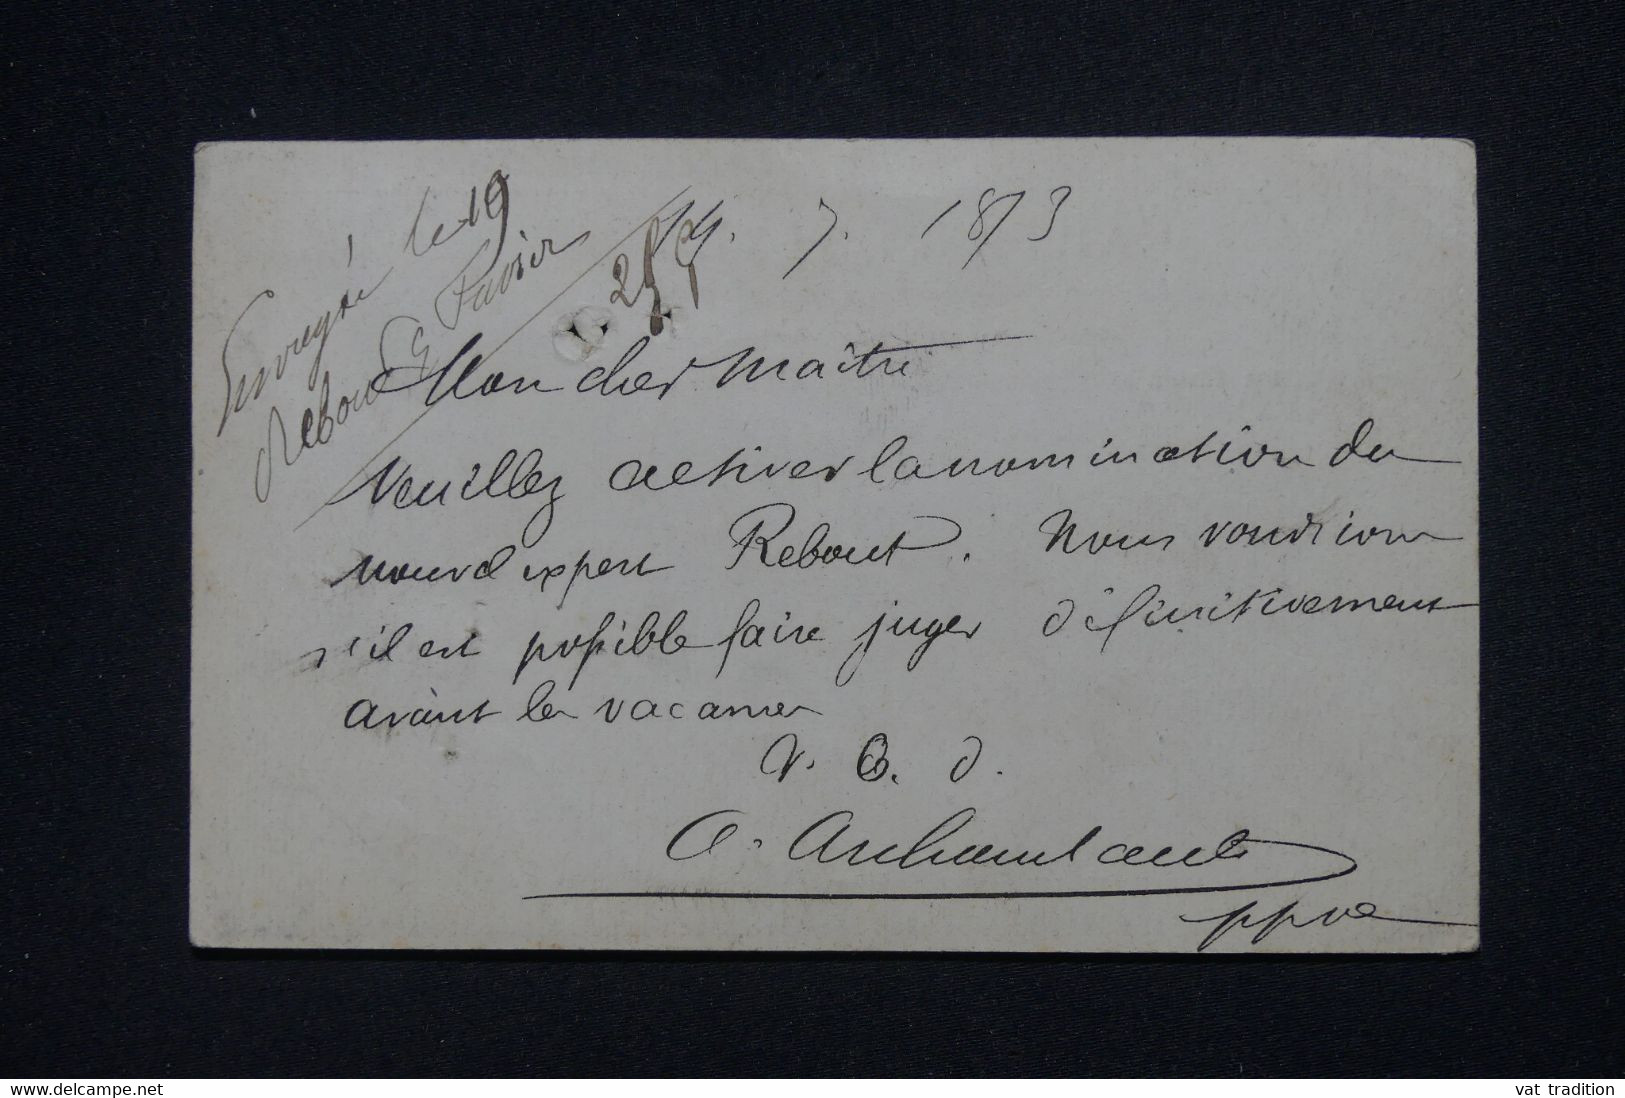 Enregistré le 19
Rebout
7. 1873
Mon cher Maître
Veuillez activer la nomination du
nouvel expert Rebout. Nous voudrions
s'il est possible faire juger définitivement
avant les vacances
V. B. d.
A. Archambault
ppve
www.delcampe.net
vat_tradition